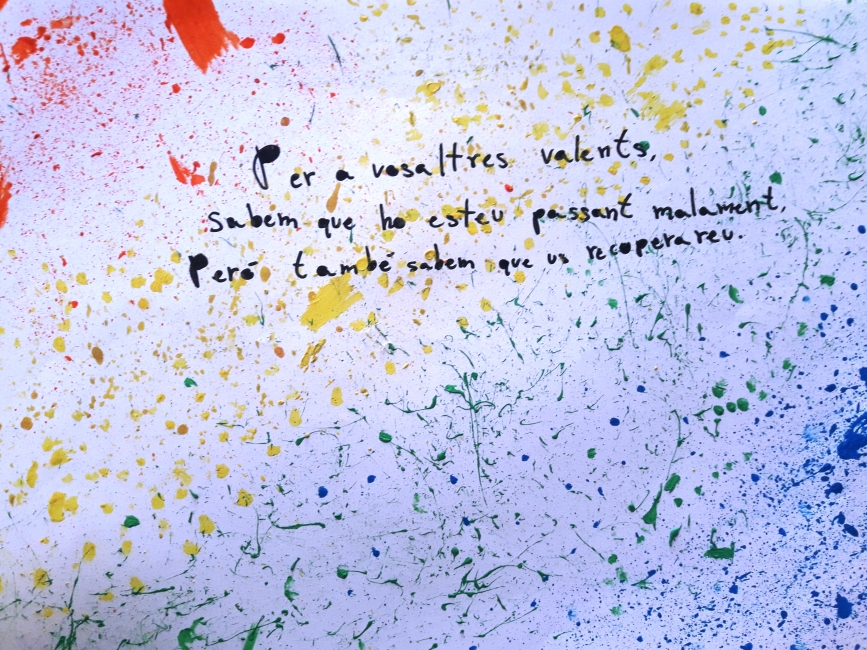 Per a vosaltres valents,
sabem que ho esteu passant malament,
Peró també sabem que us recuperareu.